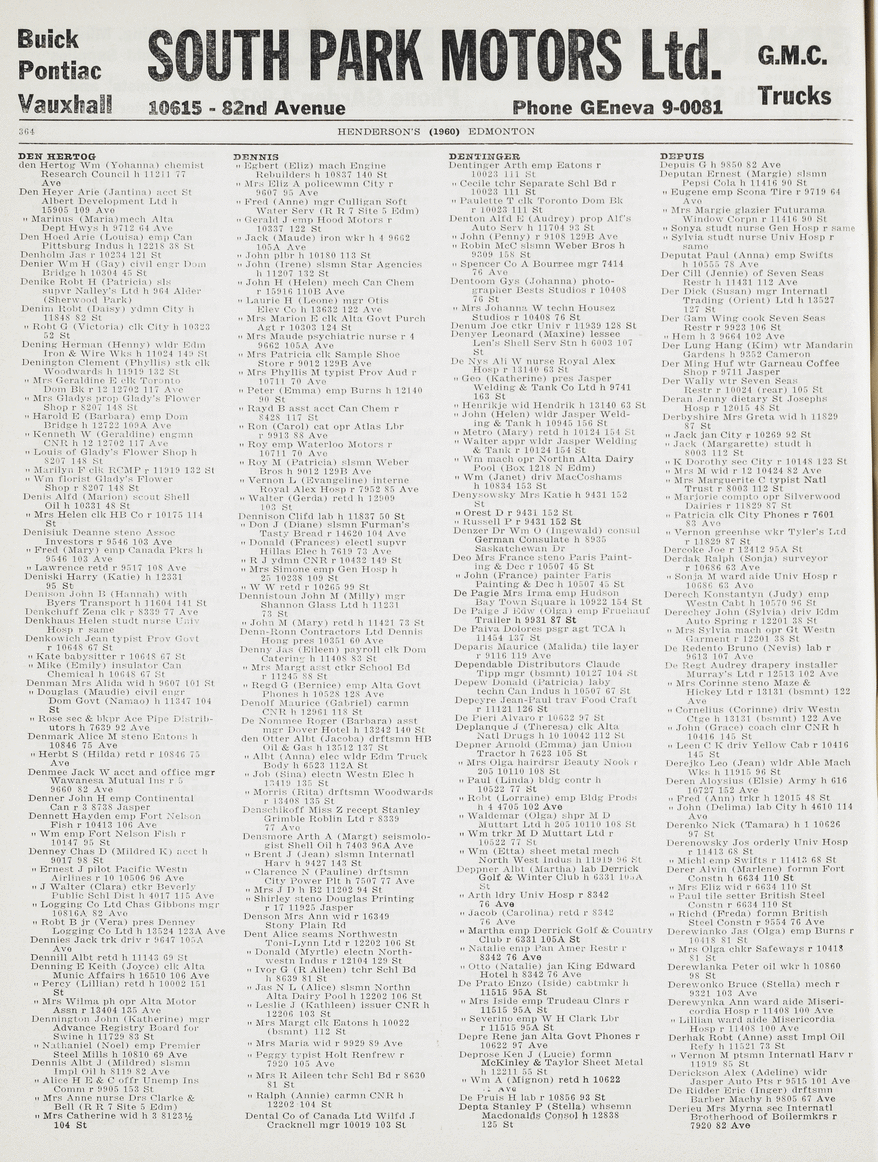 Buick
Pontiac
Vauxhall
SOUTH PARK MOTORS Ltd.
10615 - 82nd Avenue
Phone GEneva 9-0081
G.M.C.
Trucks
364
HENDERSON'S (1960) EDMONTON
DEN HERTOG
den Hertog Wm (Yohanna) chemist
Research Council h 11211 77
Ave
Den Heyer Arie (Jantina) acct St
Albert Development Ltd h
15905 109 Ave
" Marinus (Maria)mech Alta
Dept Hwys h 9712 64 Ave
Den Hoed Arie (Louisa) emp Can
Pittsburg Indus h 12218 38 St
Denholm Jas r 10234 121 St
Denier Wm H (Gay) civil engr Dom
Bridge h 10304 45 St
Denike Robt H (Patricia) sls
supvr Nalley's Ltd h 964 Alder
(Sherwood Park)
Denim Robt (Daisy) ydmn City h
11848 82 St
" Robt G (Victoria) clk City h 10323
52 St
Dening Herman (Henny) wldr Edm
Iron & Wire Wks h 11024 149 St
Denington Clement (Phyllis) stk clk
Woodwards h 11919 132 St
" Mrs Geraldine E clk Toronto
Dom Bk r 12 12702 117 Ave
" Mrs Gladys prop Glady's Flower
Shop r 8207 148 St
" Harold E (Barbara) emp Dom
Bridge h 12722 109A Ave
" Kenneth W (Geraldine) engmn
CNR h 12 12702 117 Ave
" Louis of Glady's Flower Shop h
8207 148 St
" Marilyn F clk RCMP r 11919 132 St
" Wm florist Glady's Flower
Shop r 8207 148 St
Denis Alfd (Marion) scout Shell
Oil h 10331 48 St
" Mrs Helen clk HB Co r 10175 114
St
Denisiuk Deanne steno Assoc
Investors r 9546 103 Ave
" Fred (Mary) emp Canada Pkrs h
9546 103 Ave
" Lawrence retd r 9517 108 Ave
Deniski Harry (Katie) h 12331
95 St
Denison John B (Hannah) with
Byers Transport h 11604 141 St
Denkchuff Zena clk r 8339 77 Ave
Denkhaus Helen studt nurse Univ
Hosp r same
Denkowich Jean typist Prov Govt
r 10648 67 St
" Kate babysitter r 10648 67 St
" Mike (Emily) insulator Can
Chemical h 10648 67 St
Denman Mrs Alida wid h 9607 101 St
" Douglas (Maudie) civil engr
Dom Govt (Namao) h 11347 104
St
" Rose sec & bkpr Ace Pipe Distrib-
utors h 7639 92 Ave
Denmark Alice M steno Eatons h
10846 75 Ave
" Herbt S (Hilda) retd r 10846 75
Ave
Denmee Jack W acct and office mgr
Wawanesa Mutual Ins r 5
9660 82 Ave
Denner John H emp Continental
Can r 3 8738 Jasper
Dennett Hayden emp Fort Nelson
Fish r 10413 106 Ave
" Wm emp Fort Nelson Fish r
10147 95 St
Denney Chas D (Mildred K) acct h
9017 98 St
" Ernest J pilot Pacific Westn
Airlines r 10 10506 96 Ave
" J Walter (Clara) ctkr Beverly
Public Schl Dist h 4017 115 Ave
" Logging Co Ltd Chas Gibbons mgr
10816A 82 Ave
" Robt B jr (Vera) pres Denney
Logging Co Ltd h 13524 123A Ave
Dennies Jack trk driv r 9647 105A
Ave
Dennill Albt retd h 11143 69 St
Denning E Keith (Joyce) clk Alta
Munic Affairs h 16510 106 Ave
" Percy (Lillian) retd h 10002 151
St
" Mrs Wilma ph opr Alta Motor
Assn r 13404 135 Ave
Dennington John (Katherine) mgr
Advance Registry Board for
Swine h 11729 83 St
" Nathaniel (Noel) emp Premier
Steel Mills h 10810 69 Ave
Dennis Albt J (Mildred) slsmn
Impl Oil h 8119 82 Ave
" Alice H E & C offr Unemp Ins
Comm r 9905 153 St
" Mrs Anne nurse Drs Clarke &
Bell (R R 7 Site 5 Edm)
" Mrs Catherine wid h 3 8123½
104 St
DENNIS
" Egbert (Eliz) mach Engine
Rebuilders h 10837 140 St
" Mrs Eliz A policewmn City r
9607 95 Ave
" Fred (Anne) mgr Culligan Soft
Water Serv (R R 7 Site 5 Edm)
" Gerald J emp Hood Motors r
10337 122 St
" Jack (Maude) iron wkr h 4 9662
105A Ave
" John plbr h 10180 113 St
" John (Irene) slsmn Star Agencies
h 11207 132 St
" John H (Helen) mech Can Chem
r 15916 110B Ave
" Laurie H (Leone) mgr Otis
Elev Co h 13632 122 Ave
" Mrs Marion E clk Alta Govt Purch
Agt r 10303 124 St
" Mrs Maude psychiatric nurse r 4
9662 105A Ave
" Mrs Patricia clk Sample Shoe
Store r 9012 129B Ave
" Mrs Phyllis M typist Prov Aud r
10711 70 Ave
" Peter (Emma) emp Burns h 12140
90 St
" Rayd B asst acct Can Chem r
8428 117 St
" Ron (Carol) cat opr Atlas Lbr
r 9913 88 Ave
" Roy emp Waterloo Motors r
10711 70 Ave
" Roy M (Patricia) slsmn Weber
Bros h 9012 129B Ave
" Vernon L (Evangeline) interne
Royal Alex Hosp r 7952 85 Ave
" Walter (Gerda) retd h 12909
103 St
Dennison Clifd lab h 11837 50 St
" Don J (Diane) slsmn Furman's
Tasty Bread r 14620 104 Ave
" Donald (Frances) electl supvr
Hillas Elec h 7619 73 Ave
" R J ydmn CNR r 10432 149 St
" Mrs Simone emp Gen Hosp h
25 10238 109 St
" W W retd r 10265 99 St
Dennistoun John M (Milly) mgr
Shannon Glass Ltd h 11231
73 St
" John M (Mary) retd h 11421 73 St
Denn-Ronn Contractors Ltd Dennis
Hong pres 10351 60 Ave
Denny Jas (Eileen) payroll clk Dom
Catering h 11408 83 St
" Mrs Margt asst ctkr School Bd
r 11245 88 St
" Regd G (Bernice) emp Alta Govt
Phones h 10528 128 Ave
Denolf Maurice (Gabriel) carmn
CNR h 12961 118 St
De Nommee Roger (Barbara) asst
mgr Dover Hotel h 13242 140 St
den Otter Albt (Jacoba) drftsmn HB
Oil & Gas h 13512 137 St
" Albt (Anna) elec wldr Edm Truck
Body h 6523 112A St
" Job (Sina) electn Westn Elec h
13419 135 St
" Morris (Rita) drftsmn Woodwards
r 13408 135 St
Denschikoff Miss Z recept Stanley
Grimble Roblin Ltd r 8339
77 Ave
Densmore Arth A (Margt) seismolo-
gist Shell Oil h 7403 96A Ave
" Brent J (Jean) slsmn Internatl
Harv h 9427 143 St
" Clarence N (Pauline) drftsmn
City Power Plt h 7507 77 Ave
" Mrs J D h B2 11202 94 St
" Shirley steno Douglas Printing
r 17 11925 Jasper
Denson Mrs Ann wid r 16349
Stony Plain Rd
Dent Alice seams Northwestn
Toni-Lynn Ltd r 12202 106 St
" Donald (Myrtle) electn North-
westn Indus r 12104 129 St
" Ivor G (R Aileen) tchr Schl Bd
h 8639 81 St
" Jas N L (Alice) slsmn Northn
Alta Dairy Pool h 12202 106 St
" Leslie J (Kathleen) issuer CNR h
12206 103 St
" Mrs Margt clk Eatons h 10022
(bsmnt) 112 St
" Mrs Maria wid r 9929 89 Ave
" Peggy typist Holt Renfrew r
7920 105 Ave
" Mrs R Aileen tchr Schl Bd r 8630
81 St
" Ralph (Annie) carmn CNR h
12202 104 St
Dental Co of Canada Ltd Wilfd J
Cracknell mgr 10019 103 St
DENTINGER
Dentinger Arth emp Eatons r
10023 111 St
" Cecile tchr Separate Schl Bd r
10023 111 St
" Paulette T clk Toronto Dom Bk
r 10023 111 St
Denton Alfd E (Audrey) prop Alf's
Auto Serv h 11704 93 St
" John (Penny) r 9108 129B Ave
" Robin McC slsmn Weber Bros h
9309 158 St
" Spencer Co A Bourree mgr 7414
76 Ave
Dentoom Gys (Johanna) photo-
grapher Bests Studios r 10408
76 St
" Mrs Johanna W techn Housez
Studios r 10408 76 St
Denum Joe ctkr Univ r 11939 128 St
Denyer Leonard (Maxine) lessee
Len's Shell Serv Stn h 6003 107
St
De Nys Ali W nurse Royal Alex
Hosp r 13140 63 St
" Geo (Katherine) pres Jasper
Welding & Tank Co Ltd h 9741
163 St
" Henrikje wid Hendrik h 13140 63 St
" John (Helen) wldr Jasper Weld-
ing & Tank h 10945 156 St
" Metro (Mary) retd h 10124 154 St
" Walter appr wldr Jasper Welding
& Tank r 10124 154 St
" Wm mach opr Northn Alta Dairy
Pool (Box 1218 N Edm)
" Wm (Janet) driv MacCoshams
h 10834 153 St
Denysowsky Mrs Katie h 9431 152
St
" Orest D r 9431 152 St
" Russell P r 9431 152 St
Denzer Dr Wm O (Ingewald) consul
German Consulate h 8935
Saskatchewan Dr
Deo Mrs France steno Paris Paint-
ing & Dec r 10507 45 St
" John (France) painter Paris
Painting & Dec h 10507 45 St
De Pagie Mrs Irma emp Hudson
Bay Town Square h 10922 154 St
De Paige J Edw (Olga) emp Fruehauf
Trailer h 9931 87 St
De Paiva Dolores psgr agt TCA h
11454 137 St
Deparis Maurice (Malida) tile layer
r 9116 119 Ave
Dependable Distributors Claude
Tipp mgr (bsmnt) 10127 104 St
Depew Donald (Patricia) laby
techn Can Indus h 10507 67 St
Depeyre Jean-Paul trav Food Craft
r 11121 126 St
De Pieri Alvaro r 10632 97 St
Deplanque J (Theresa) clk Alta
Natl Drugs h 10 10042 112 St
Depner Arnold (Emma) jan Union
Tractor h 7623 105 St
" Mrs Olga hairdrsr Beauty Nook r
205 10110 108 St
" Paul (Linda) bldg contr h
10522 77 St
" Robt (Lorraine) emp Bldg Prods
h 4 4705 102 Ave
" Waldemar (Olga) shpr M D
Muttart Ltd h 205 10110 108 St
" Wm trkr M D Muttart Ltd r
10522 77 St
" Wm (Etta) sheet metal mech
North West Indus h 11919 96 St
Deppner Albt (Martha) lab Derrick
Golf & Winter Club h 6331 105A
St
" Arth ldry Univ Hosp r 8342
76 Ave
" Jacob (Carolina) retd r 8342
76 Ave
" Martha emp Derrick Golf & Country
Club r 6331 105A St
" Natalie emp Pan Amer Restr r
8342 76 Ave
" Otto (Natalie) jan King Edward
Hotel h 8342 76 Ave
De Prato Enzo (Iside) cabtmkr h
11515 95A St
" Mrs Iside emp Trudeau Clnrs r
11515 95A St
" Severino emp W H Clark Lbr
r 11515 95A St
Depre Rene jan Alta Govt Phones r
10622 97 Ave
Deprose Ken J (Lucie) formn
McKinley & Taylor Sheet Metal
h 12211 55 St
" Wm A (Mignon) retd h 10622
Ave
De Pruis H lab r 10856 93 St
Depta Stanley P (Stella) whsemn
Macdonalds Consol h 12838
125 St
DEPUIS
Depuis G h 9850 82 Ave
Deputan Ernest (Margie) slsmn
Pepsi Cola h 11416 90 St
" Eugene emp Scona Tire r 9719 64
Ave
" Mrs Margie glazier Futurama
Window Corpn r 11416 90 St
" Sonya studt nurse Gen Hosp r same
" Sylvia studt nurse Univ Hosp r
same
Deputat Paul (Anna) emp Swifts
h 10555 78 Ave
Der Cill (Jennie) of Seven Seas
Restr h 11431 112 Ave
Der Dick (Susan) mgr Internatl
Trading (Orient) Ltd h 13527
127 St
Der Gam Wing cook Seven Seas
Restr r 9923 106 St
" Hem h 3 9664 102 Ave
Der Lung Hang (Kim) wtr Mandarin
Gardens h 9352 Cameron
Der Ming Huf wtr Garneau Coffee
Shop r 9711 Jasper
Der Wally wtr Seven Seas
Restr r 10024 (rear) 105 St
Deran Jenny dietary St Josephs
Hosp r 12015 48 St
Derbyshire Mrs Greta wid h 11829
87 St
" Jack jan City r 10269 92 St
" Jack (Margarette) studt h
8003 112 St
" K Dorothy sec City r 10148 123 St
" Mrs M wid r 12 10424 82 Ave
" Mrs Marguerite C typist Natl
Trust r 8003 112 St
" Marjorie compto opr Silverwood
Dairies r 11829 87 St
" Patricia clk City Phones r 7601
83 Ave
" Vernon greenhse wkr Tyler's Ltd
r 11829 87 St
Dercoke Joe r 12412 95A St
Derdak Ralph (Sonja) surveyor
r 10686 63 Ave
" Sonja M ward aide Univ Hosp r
10686 63 Ave
Derech Konstantyn (Judy) emp
Westn Cabt h 10570 96 St
Derechey John (Sylvia) driv Edm
Auto Spring r 12201 38 St
" Mrs Sylvia mach opr Gt Westn
Garment r 12201 38 St
De Redento Bruno (Nevis) lab r
9613 107 Ave
De Regt Audrey drapery installer
Murray's Ltd r 12513 102 Ave
" Mrs Corinne steno Maze &
Hickey Ltd r 13131 (bsmnt) 122
Ave
" Cornelius (Corinne) driv Westn
Ctge h 13131 (bsmnt) 122 Ave
" John (Grace) coach clnr CNR h
10416 145 St
" Leen C K driv Yellow Cab r 10416
145 St
Derejko Leo (Jean) wldr Able Mach
Wks h 11915 96 St
Deren Aloysius (Elsie) Army h 616
10727 152 Ave
" Fred (Ann) trkr h 12015 48 St
" John (Delima) lab City h 4610 114
Ave
Derenko Nick (Tamara) h 1 10626
97 St
Derenowsky Jos orderly Univ Hosp
r 11413 68 St
" Michl emp Swifts r 11413 68 St
Derer Alvin (Marlene) formn Fort
Constn h 6634 110 St
" Mrs Eliz wid r 6634 110 St
" Paul tile setter British Steel
Constn r 6634 110 St
" Richd (Freda) formn British
Steel Constn r 9554 76 Ave
Derewianko Jas (Olga) emp Burns r
10418 81 St
" Mrs Olga chkr Safeways r 10418
81 St
Derewlanka Peter oil wkr h 10860
98 St
Derewonko Bruce (Stella) mech r
9321 103 Ave
Derewynka Ann ward aide Miseri-
cordia Hosp r 11408 100 Ave
" Lillian ward aide Misericordia
Hosp r 11408 100 Ave
Derhak Robt (Anne) asst Impl Oil
Refy h 11521 73 St
" Vernon M ptsmn Internatl Harv r
11919 85 St
Derickson Alex (Adeline) wldr
Jasper Auto Pts r 9515 101 Ave
De Ridder Eric (Inger) drftsmn
Barber Machy h 9805 67 Ave
Derieu Mrs Myrna sec Internatl
Brotherhood of Boilermkrs r
7920 82 Ave